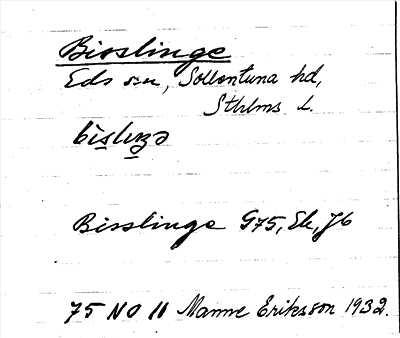 Bisslinge
Eds sn, Sollentuna hd,
Sthlms l.
Bisslinge G75, Ek, Jb
75 NO 11 Manne Eriksson 1932.